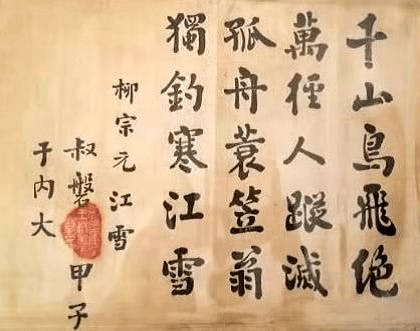 千山鳥飛绝
萬徑人蹤滅
孤舟蓑笠翁
獨釣寒江雪
柳宗元江雪
叔磐甲子
于内大